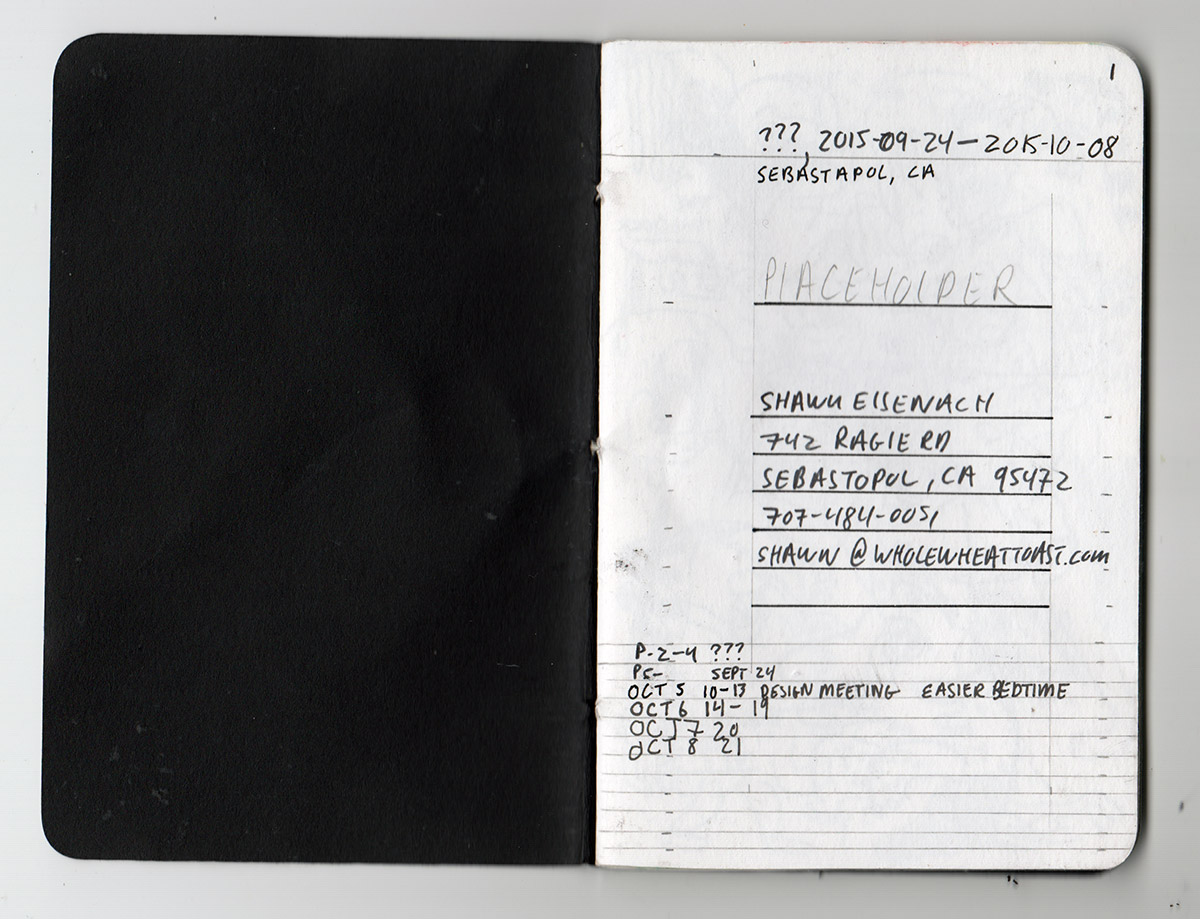 1
???, 2015-09-24 — 2015-10-08
SEBASTAPOL, CA
PLACEHOLDER
SHAWN EISENACH
742 RAGLE RD
SEBASTOPOL, CA 95472
707-484-0051
SHAWN@WHOLEWHEATTOAST.com
P-2-4 ???
P5- SEPT 24
OCT 5 10-13 DESIGN MEETING EASIER BEDTIME
OCT 6 14-19
OCT 7 20
OCT 8 21